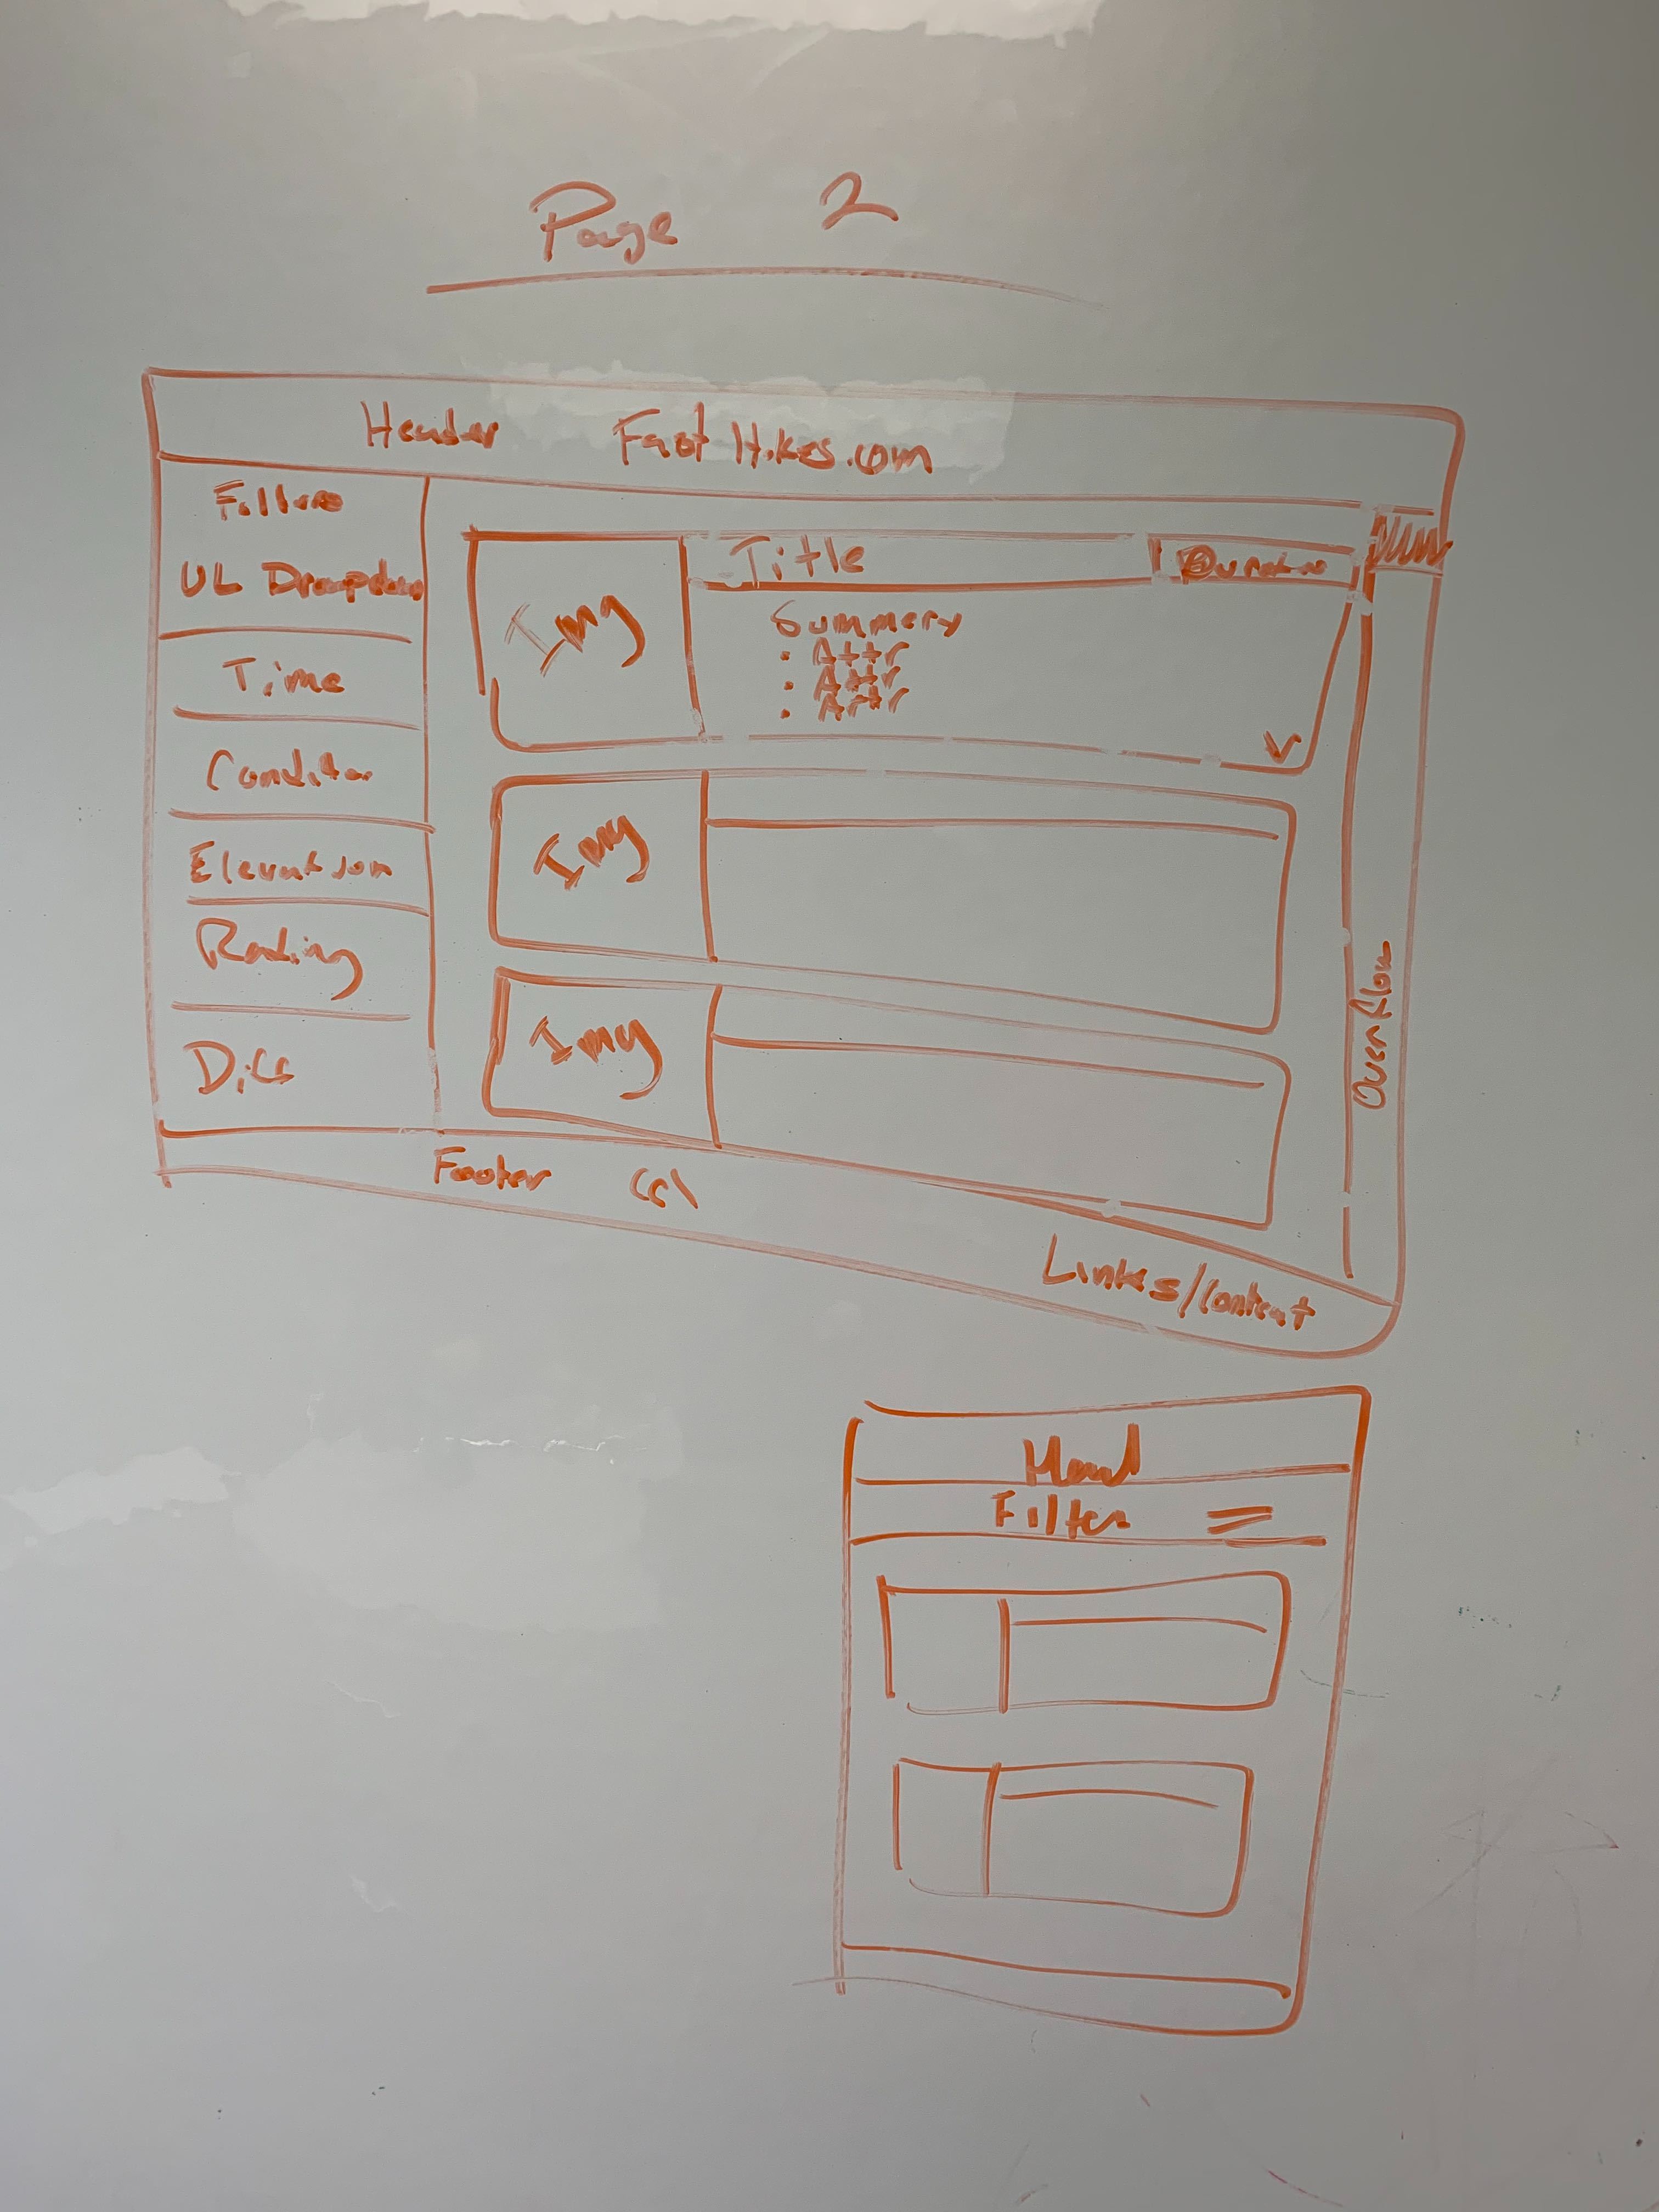 Page 2
Header Fast Hikes.com
UL Dropdown
Time
Elevation
Rating
Diff
Img
Title
Duration
Summery
• Attr
• Attr
• Attr
Img
Img
Overflow
Footer (c)
Links/Content
Head
Filter